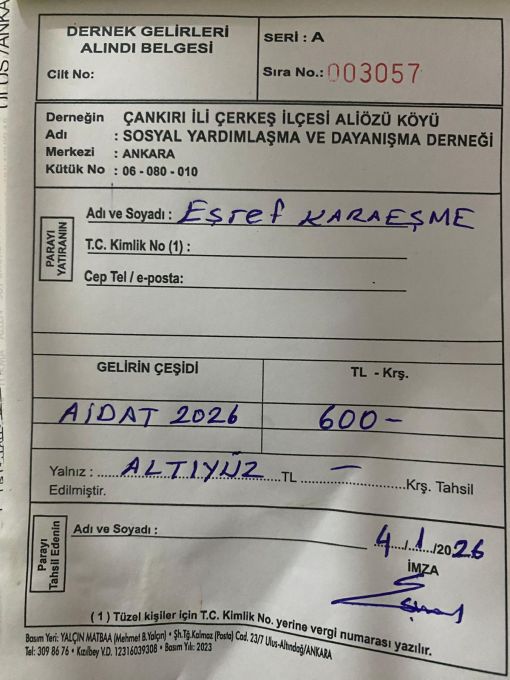 DERNEK GELİRLERİ
ALINDI BELGESİ
Cilt No:
SERİ : A
Sıra No.: 003057
Derneğin ÇANKIRI İLİ ÇERKEŞ İLÇESİ ALİÖZÜ KÖYÜ
Adı : SOSYAL YARDIMLAŞMA VE DAYANIŞMA DERNEĞİ
Merkezi : ANKARA
Kütük No : 06 - 080 - 010
PARAYI
YATIRANIN
Adı ve Soyadı : Eşref KARAEŞME
T.C. Kimlik No (1) :
Cep Tel / e-posta:
GELİRİN ÇEŞİDİ
TL - Krş.
AİDAT 2026
600-
Yalnız : ALTIYÜZ TL — Krş. Tahsil
Edilmiştir.
Parayı
Tahsil Edenin
Adı ve Soyadı :
4/1/2026
İMZA
( 1 ) Tüzel kişiler için T.C. Kimlik No. yerine vergi numarası yazılır.
Basım Yeri: YALÇIN MATBAA (Mehmet B.Yalçın) • Şh.Tğ.Kalmaz (Posta) Cad. 23/7 Ulus-Altındağ/ANKARA
Tel: 309 86 76 • Kızılbey V.D. 12316039308 • Basım Yılı: 2023